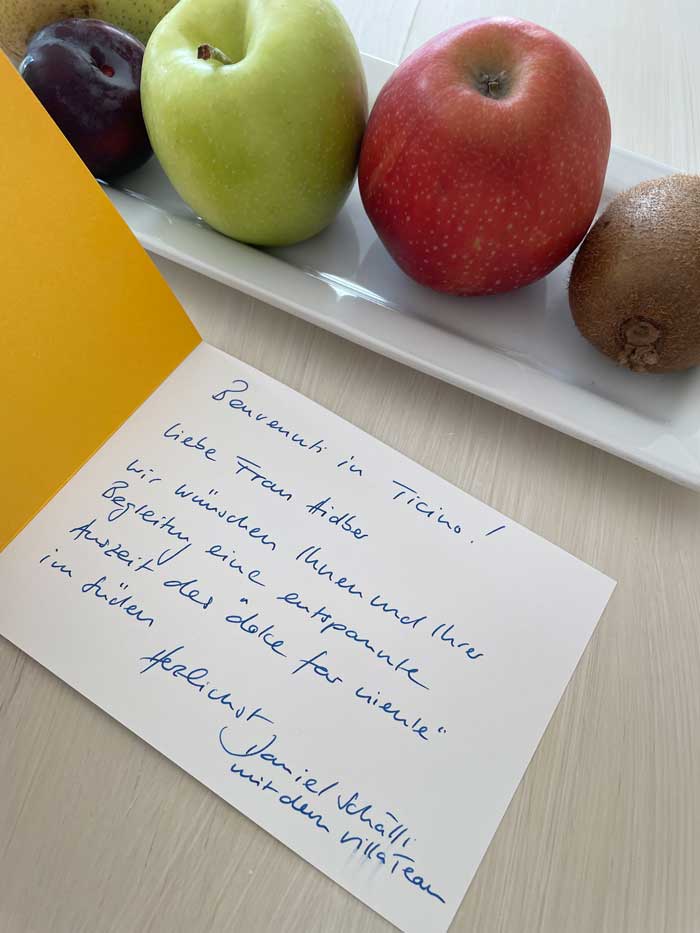 Benvenuti in Ticino!
liebe Frau Aidber
wir wünschen Ihnen und Ihrer
Begleitung eine entspannte
Auszeit des "dolce far niente"
im Süden
Herzlichst
Daniel Schälli
mit dem Villa Team